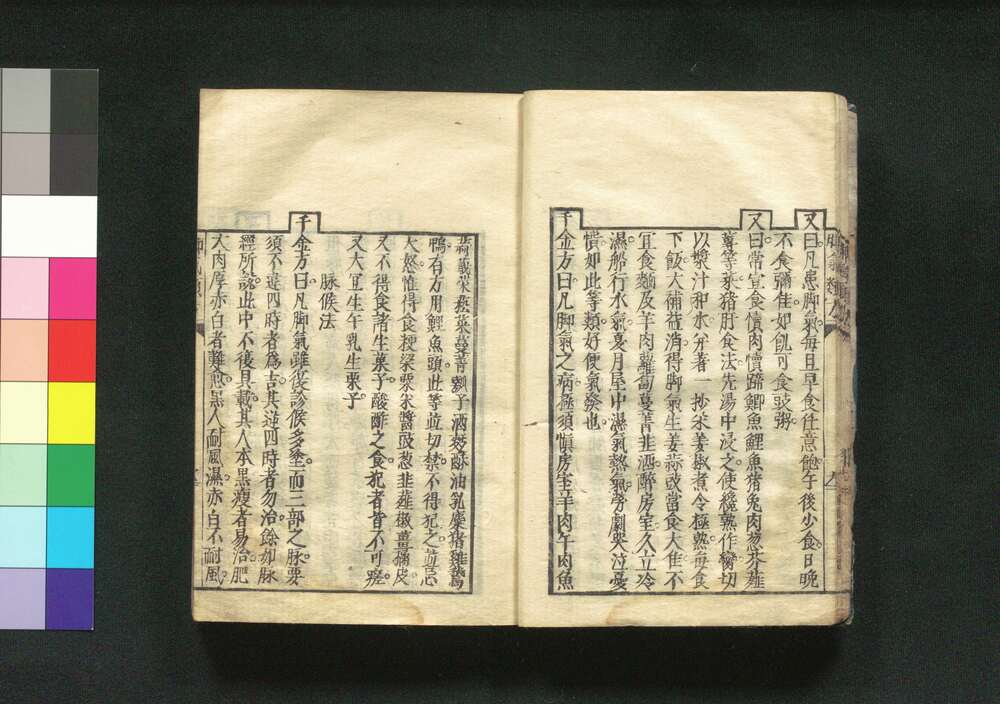 又曰凡患脚氣每旦早食任意飽午後少食日晚
不食彌佳如飢可食豉粥
又曰常宜食犢肉犢蹄鯽魚鯉魚猪兔肉葱芥薤
蓴等菜猪肝食法先湯中浸之使纔熟作臠切
以漿汁和水分著一抄米姜椒煮令極熟每食
下飯大補益消得脚氣生姜蒜豉當食大佳不
冝食麵及羊肉蘿蔔蔓菁韭酒醉房室久立冷
濕船行水氣夏月屋中濕氣熱氣勞劇哭泣憂
憤如此等類好便氣發也
千金方曰凡脚氣之病極須慎房室羊肉牛肉魚
蒜蕺菜菘菜蔓菁瓠子酒麪酥油乳糜猪雞鵞
鴨有方用鯉魚頭此等並切禁不得犯之並忌
大怒惟得食粳粱粟米醬豉葱韭薤椒薑橘皮
又不得食諸生菓子酸酢之食犯者皆不可瘥
又大冝生牛乳生栗子
脉候法
千金方曰凡脚氣雖復診候多塗而三部之脉要
須不違四時者為吉其逆四時者勿治餘如脉
經所說此中不復具載其人本黒瘦者易治肥
大肉厚赤白者難愈黒人耐風濕赤白不耐風